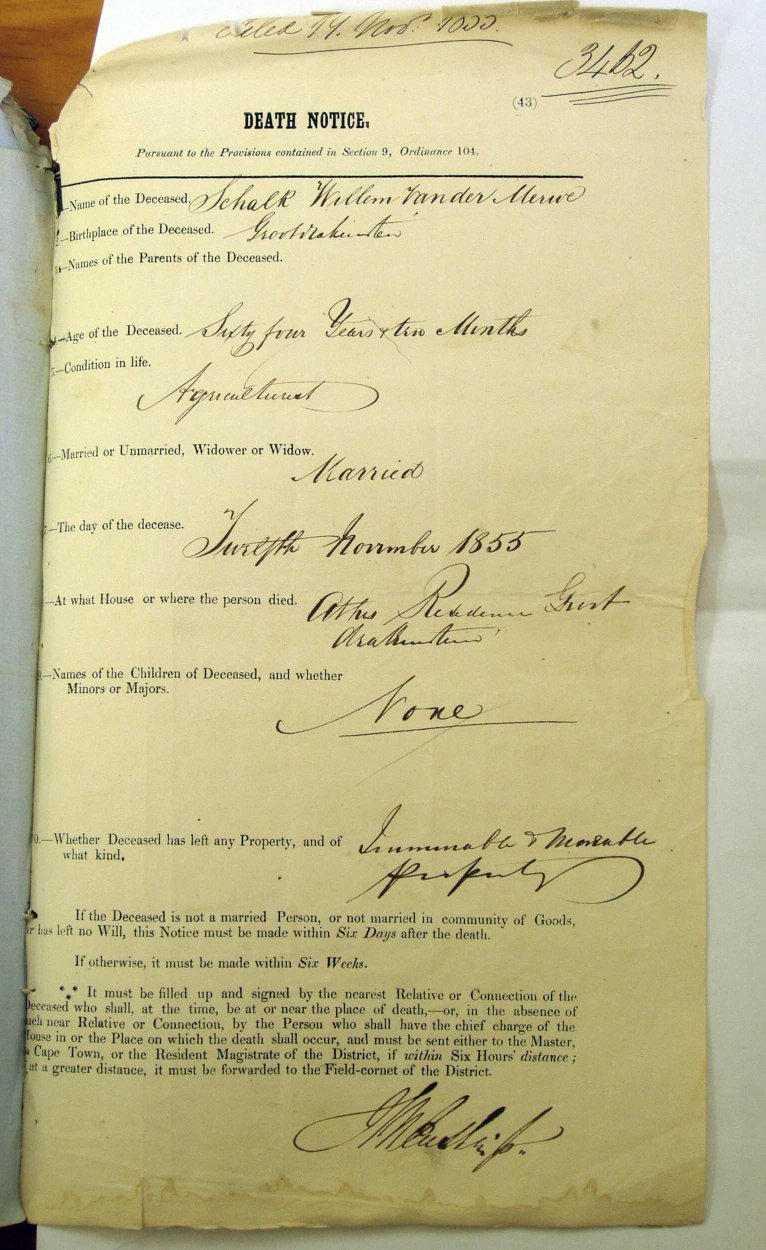 Filed 19. Nov.r 1855.
3462.
(43)
DEATH NOTICE.
Pursuant to the Provisions contained in Section 9, Ordinance 104.
—Name of the Deceased. Schalk Willem Van der Merwe
—Birthplace of the Deceased. Grootdrakenstein
—Names of the Parents of the Deceased.
—Age of the Deceased. Sixty four Years & ten Months
5.—Condition in life.
Agriculturist
6.—Married or Unmarried, Widower or Widow.
Married
7.—The day of the decease.
Twelfth November 1855
—At what House or where the person died. At his Residence Groot
drakenstein
9.—Names of the Children of Deceased, and whether
Minors or Majors.
None
10.—Whether Deceased has left any Property, and of
what kind.
Immovable & Moveable
Property
If the Deceased is not a married Person, or not married in community of Goods,
or has left no Will, this Notice must be made within Six Days after the death.
If otherwise, it must be made within Six Weeks.
*** It must be filled up and signed by the nearest Relative or Connection of the
Deceased who shall, at the time, be at or near the place of death,—or, in the absence of
such near Relative or Connection, by the Person who shall have the chief charge of the
House in or the Place on which the death shall occur, and must be sent either to the Master,
Cape Town, or the Resident Magistrate of the District, if within Six Hours' distance;
at a greater distance, it must be forwarded to the Field-cornet of the District.